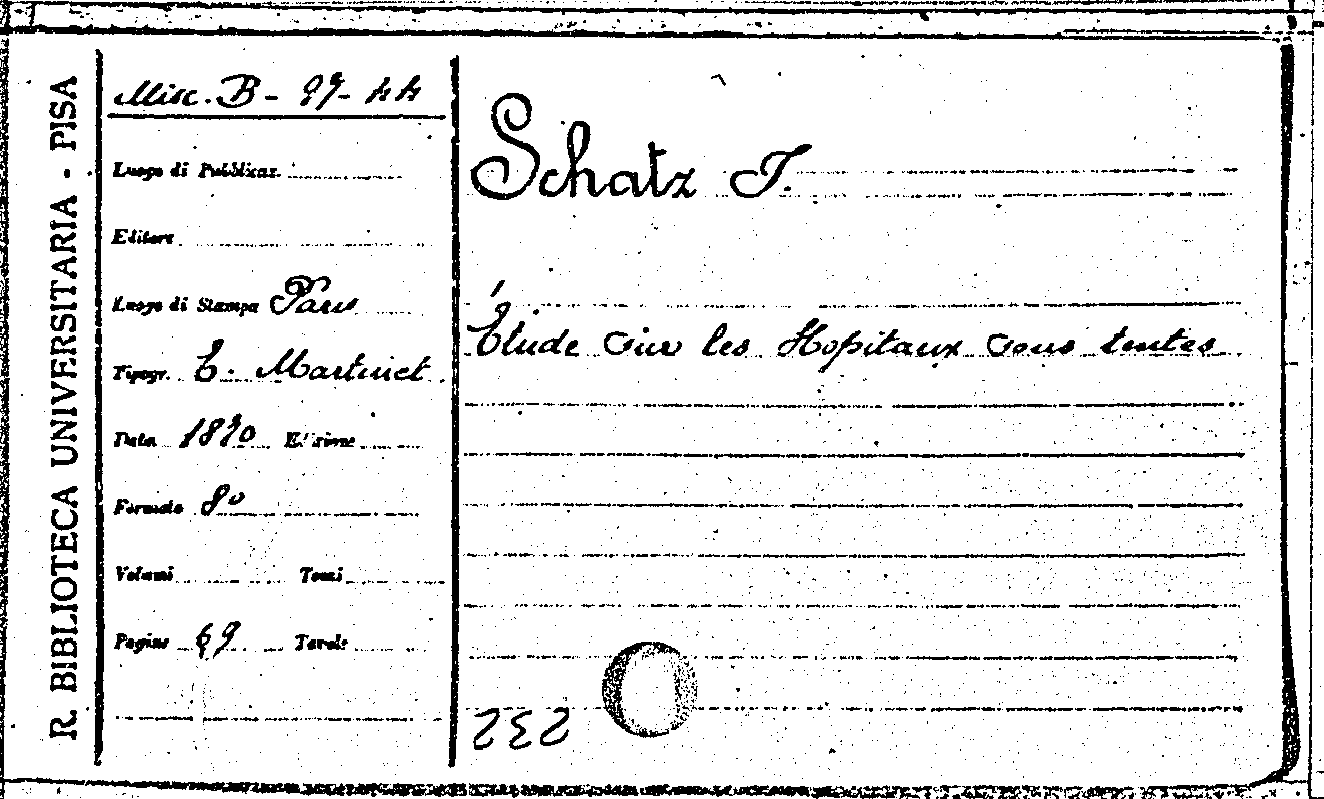 R. BIBLIOTECA UNIVERSITARIA - PISA
Misc. B - 27 - 44
Luogo di Pubblicaz.
Editore
Luogo di Stampa Paris
Tipogr. E. Martinet
Data 1870 Edizione
Formato 8°
Volumi Tomi
Pagine 69 Tavole
Schatz J.
Étude sur les Hopitaux sous tentes
232